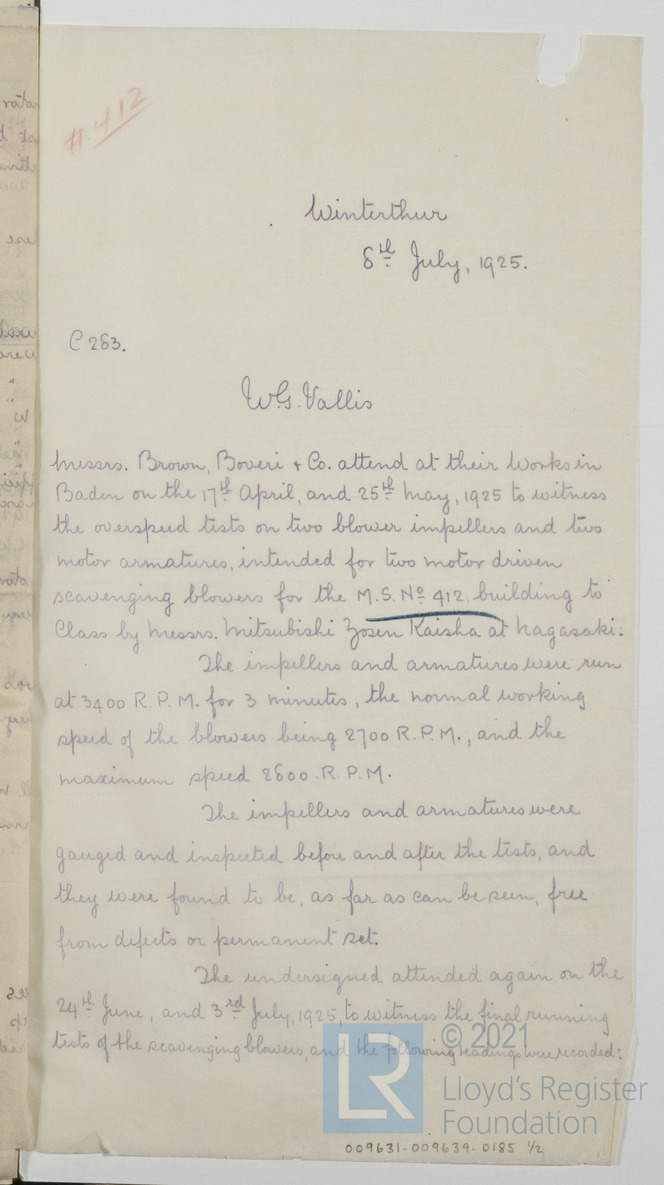 #.412
Winterthur
8th July, 1925.
C 283.
W.G. Vallis
Messrs. Brown, Boveri & Co. attend at their Works in
Baden on the 17th April, and 25th May, 1925 to witness
the overspeed tests on two blower impellers and two
motor armatures, intended for two motor driven
scavenging blowers for the M.S. No 412, building to
Class by Messrs. Mitsubishi Zosen Kaisha at Nagasaki.
The impellers and armatures were run
at 3400 R.P.M. for 3 minutes, the normal working
speed of the blowers being 2700 R.P.M., and the
maximum speed 2800 R.P.M.
The impellers and armatures were
gauged and inspected before and after the tests, and
they were found to be, as far as can be seen, free
from defects or permanent set.
The undersigned attended again on the
24th June, and 3rd July, 1925, to witness the final running
tests of the scavenging blowers, and the following readings were recorded:
LR
© 2021
Lloyd's Register
Foundation
009631-009639-0185 1/2